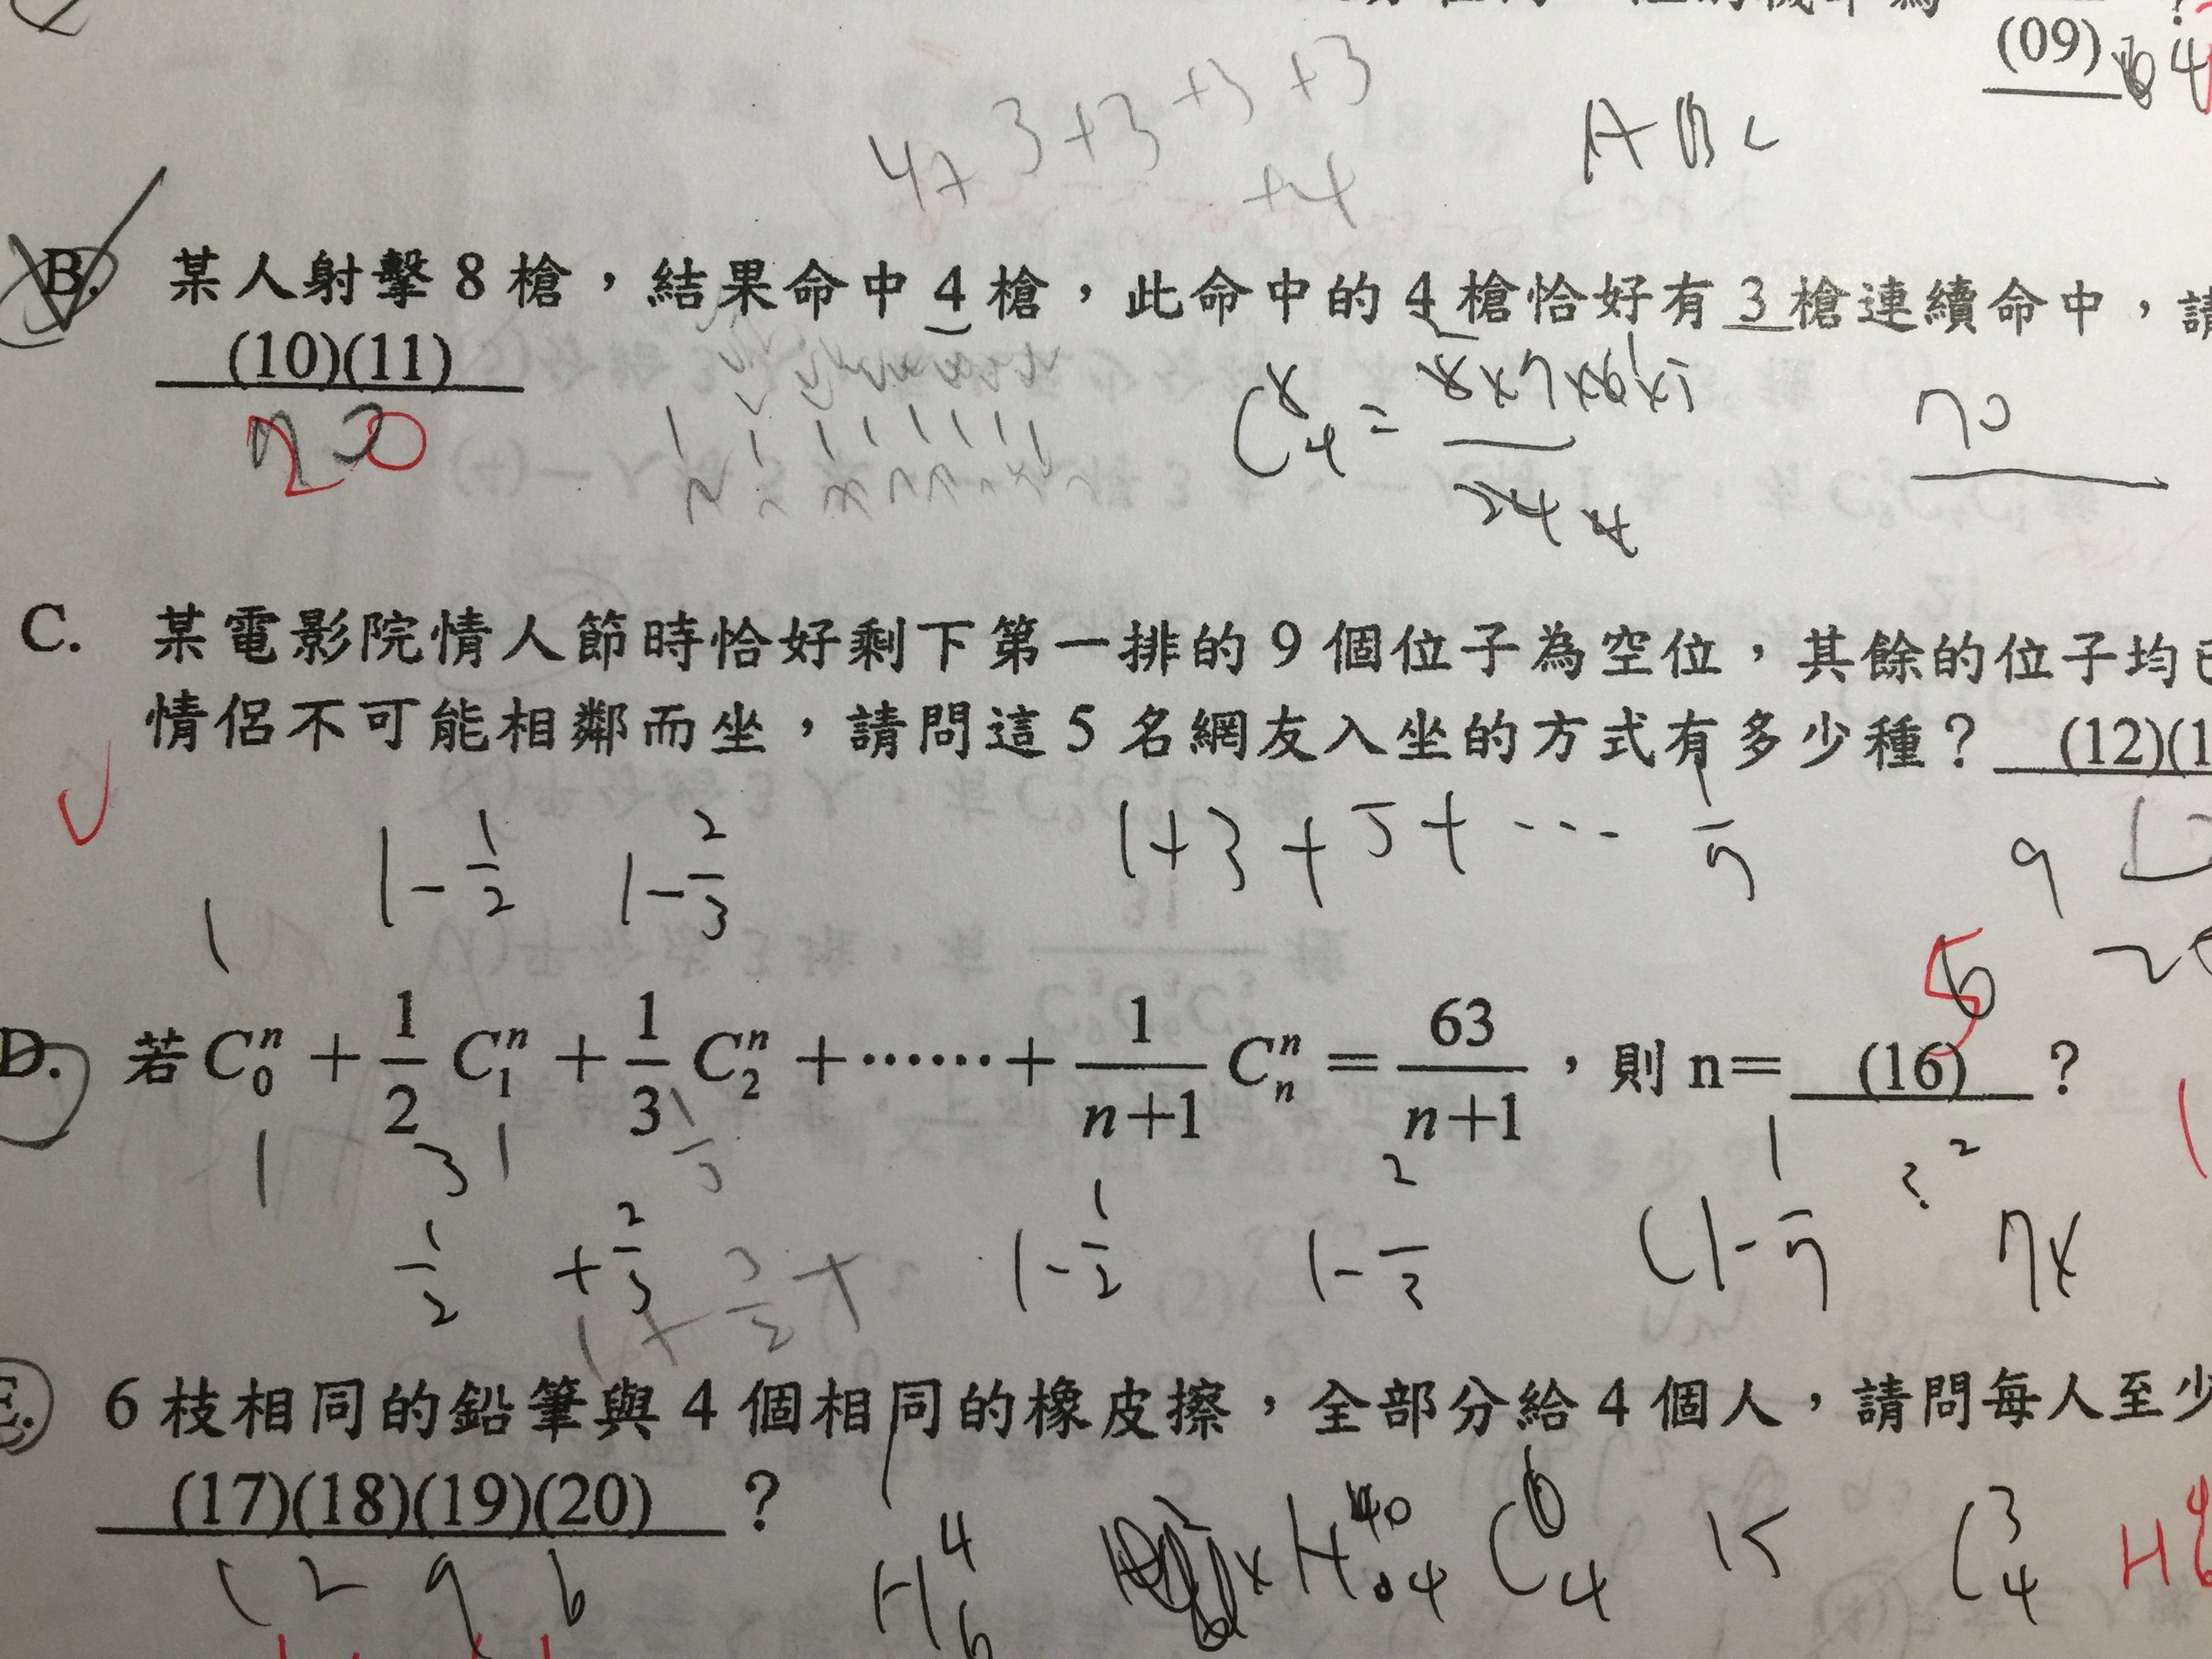 (09) 4
47 3+3+3+3
+4
A B C
B. 某人射擊 8 槍，結果命中 4 槍，此命中的 4 槍恰好有 3 槍連續命中，請
(10)(11)
20
C 8 4 = 8×7×6×5 / 24
70
C. 某電影院情人節時恰好剩下第一排的 9 個位子為空位，其餘的位子均已
情侶不可能相鄰而坐，請問這 5 名網友入坐的方式有多少種？ (12)(1
1 1-1/2 1-2/3 1+3+5+… 9
5
D. 若 C₀ⁿ + 1/2 C₁ⁿ + 1/3 C₂ⁿ +……+ 1/(n+1) Cₙⁿ = 63/(n+1)，則 n= (16) ？
1 3 1
1/2 +2/3 1-1/2 1-2/3
1+3/2+
E. 6 枝相同的鉛筆與 4 個相同的橡皮擦，全部分給 4 個人，請問每人至少
(17)(18)(19)(20) ？
1 2 9 6 H 4 6 × H 4 C 6 4 15 C 3 4 H